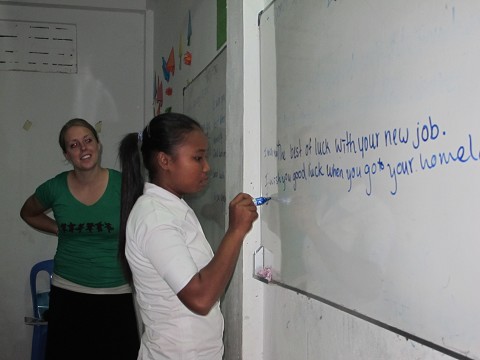 I wish you The best of luck with your new job.
I wish you good luck when you go to your homel